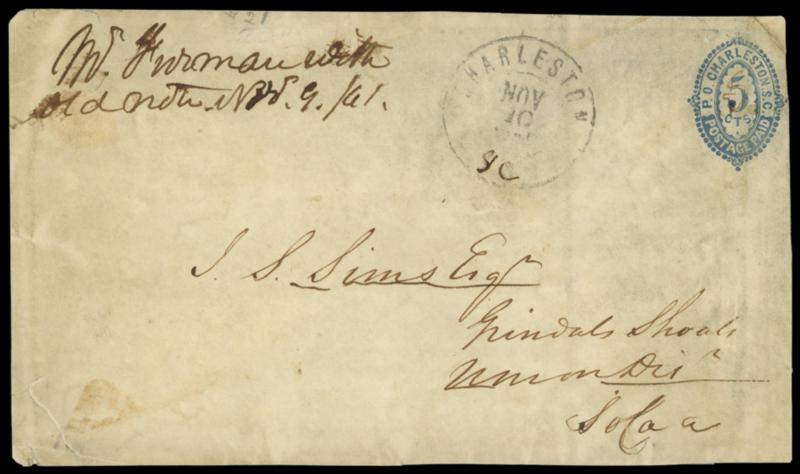 Mr. Furman with
old note. Nov. 9. /61.
CHARLESTON
NOV
10
SC
P.O. CHARLESTON, S.C.
5
CTS
POSTAGE PAID
J. S. Sims Esqr
Grindals Shoals
Union Dist
So Ca